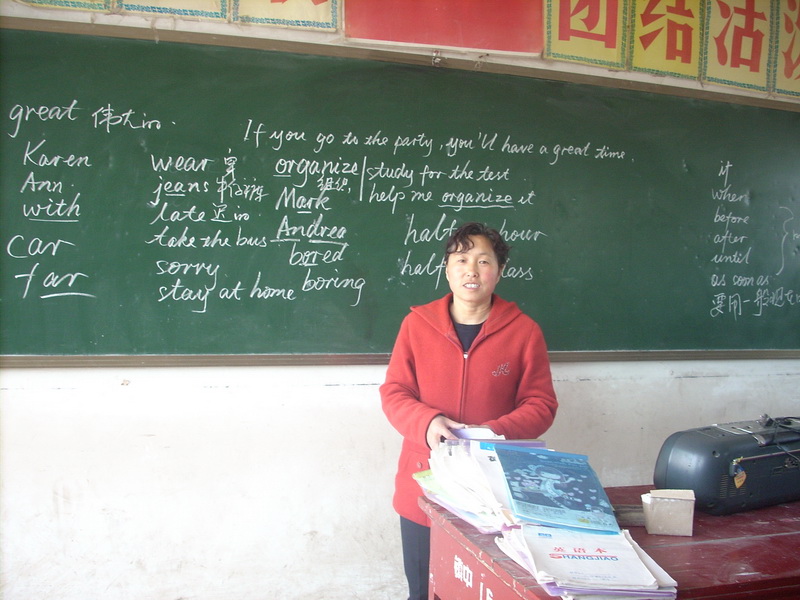 团 结 活
great 伟大的.
If you go to the party, you'll have a great time.
Karen
Ann
with
car
far
wear 穿
jeans 牛仔裤
late 迟的
take the bus
sorry
stay at home
organize
组织
Mark
Andrea
bored
boring
study for the test
help me organize it
half hour
half
if
when
before
after
until
as soon as
要用一般现在
英语本
SHANGJIAO